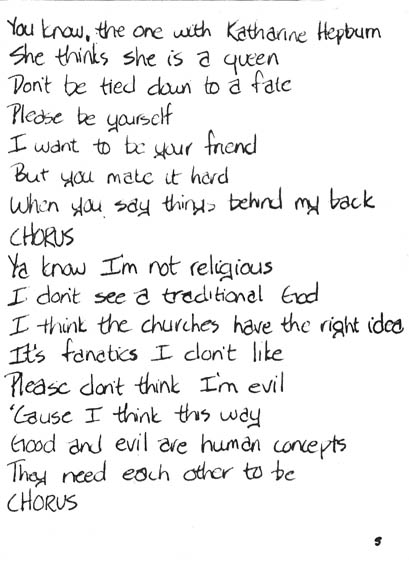 You know, the one with Katharine Hepburn
She thinks she is a queen
Don't be tied down to a fate
Please be yourself
I want to be your friend
But you make it hard
When you say things behind my back
CHORUS
Ya know I'm not religious
I don't see a traditional God
I think the churches have the right idea
It's fanatics I don't like
Please don't think I'm evil
'Cause I think this way
Good and evil are human concepts
They need each other to be
CHORUS
5